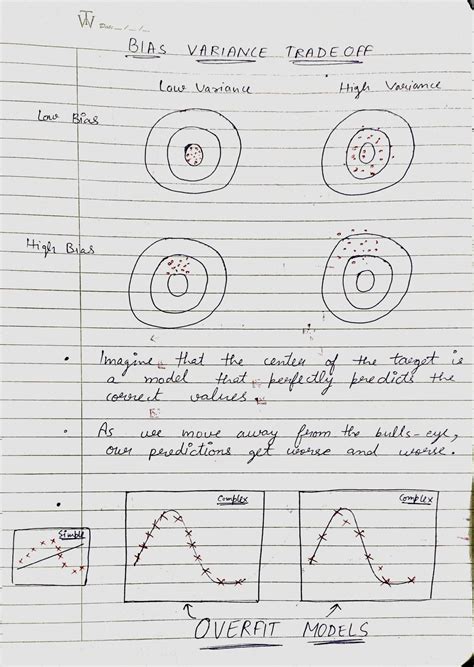 Date: _/_/_
BIAS VARIANCE TRADEOFF
Low Variance High Variance
Low Bias
High Bias
• Imagine that the center of the target is
a model that perfectly predicts the
correct values.
• As we move away from the bulls-eye,
our predictions get worse and worse.
•
Simple Complex Complex
OVERFIT MODELS